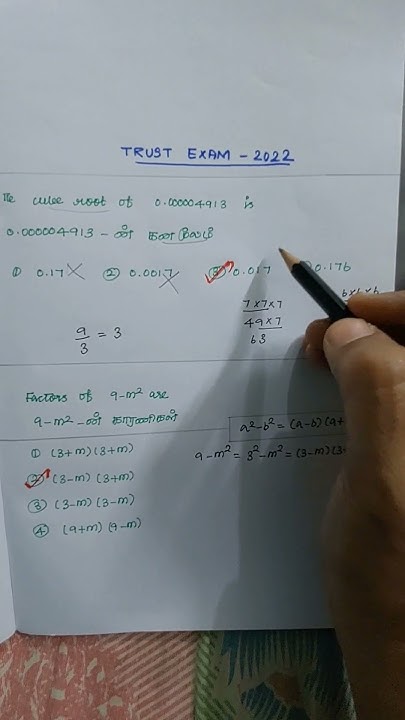 TRUST EXAM - 2022
The cube root of 0.000004913 is
0.000004913 - ன் கனமூலம்
① 0.17 ② 0.0017 ③ 0.017 0.176
7×7×7
49×7
63
6×6×6
9/3 = 3
Factors of 9-m² are
9-m² - ன் காரணிகள்
a²-b² = (a-b)(a+
① (3+m)(3+m)
9-m² = 3²-m² = (3-m)(3+
② (3-m)(3+m)
③ (3-m)(3-m)
④ (9+m)(9-m)